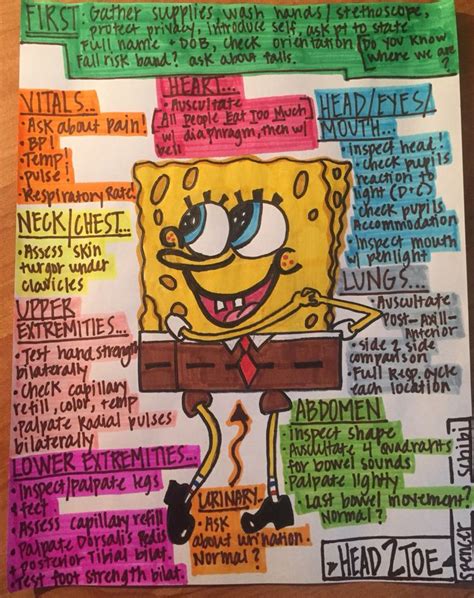 FIRST: Gather supplies, wash hands/stethoscope,
protect privacy, introduce self, ask pt to state
Full name + DOB, check orientation (Do you know
Fall risk band? ask about falls. where we are?
VITALS...
• Ask about pain!
• BP!
• Temp!
• Pulse!
• Respiratory Rate!
HEART...
• Auscultate
(All People Eat Too Much)
w/ diaphragm, then w/
bell
HEAD/EYES/
MOUTH...
• Inspect head!
• check pupils
reaction to
light (D+C)
• check pupils
Accommodation
• Inspect mouth
w/ penlight
NECK/CHEST...
• Assess skin
turgor under
clavicles
LUNGS...
• Auscultate
Post- Axill-
Anterior
• Side 2 side
comparison
• Full Resp. cycle
each location
UPPER
EXTREMITIES...
• Test hand strength
bilaterally
• Check capillary
refill, color, temp
• Palpate Radial pulses
bilaterally
ABDOMEN
• Inspect shape
• Auscultate 4 Quadrants
for bowel sounds
• Palpate lightly
• Last bowel movement?
Normal?
LOWER EXTREMITIES...
• Inspect/palpate legs
+ feet
• Assess capillary refill
• Palpate Dorsalis Pedis
+ Posterior Tibial bilat.
• Test foot strength bilat.
URINARY...
• Ask
about urination.
Normal?
HEAD2TOE
SPENCER